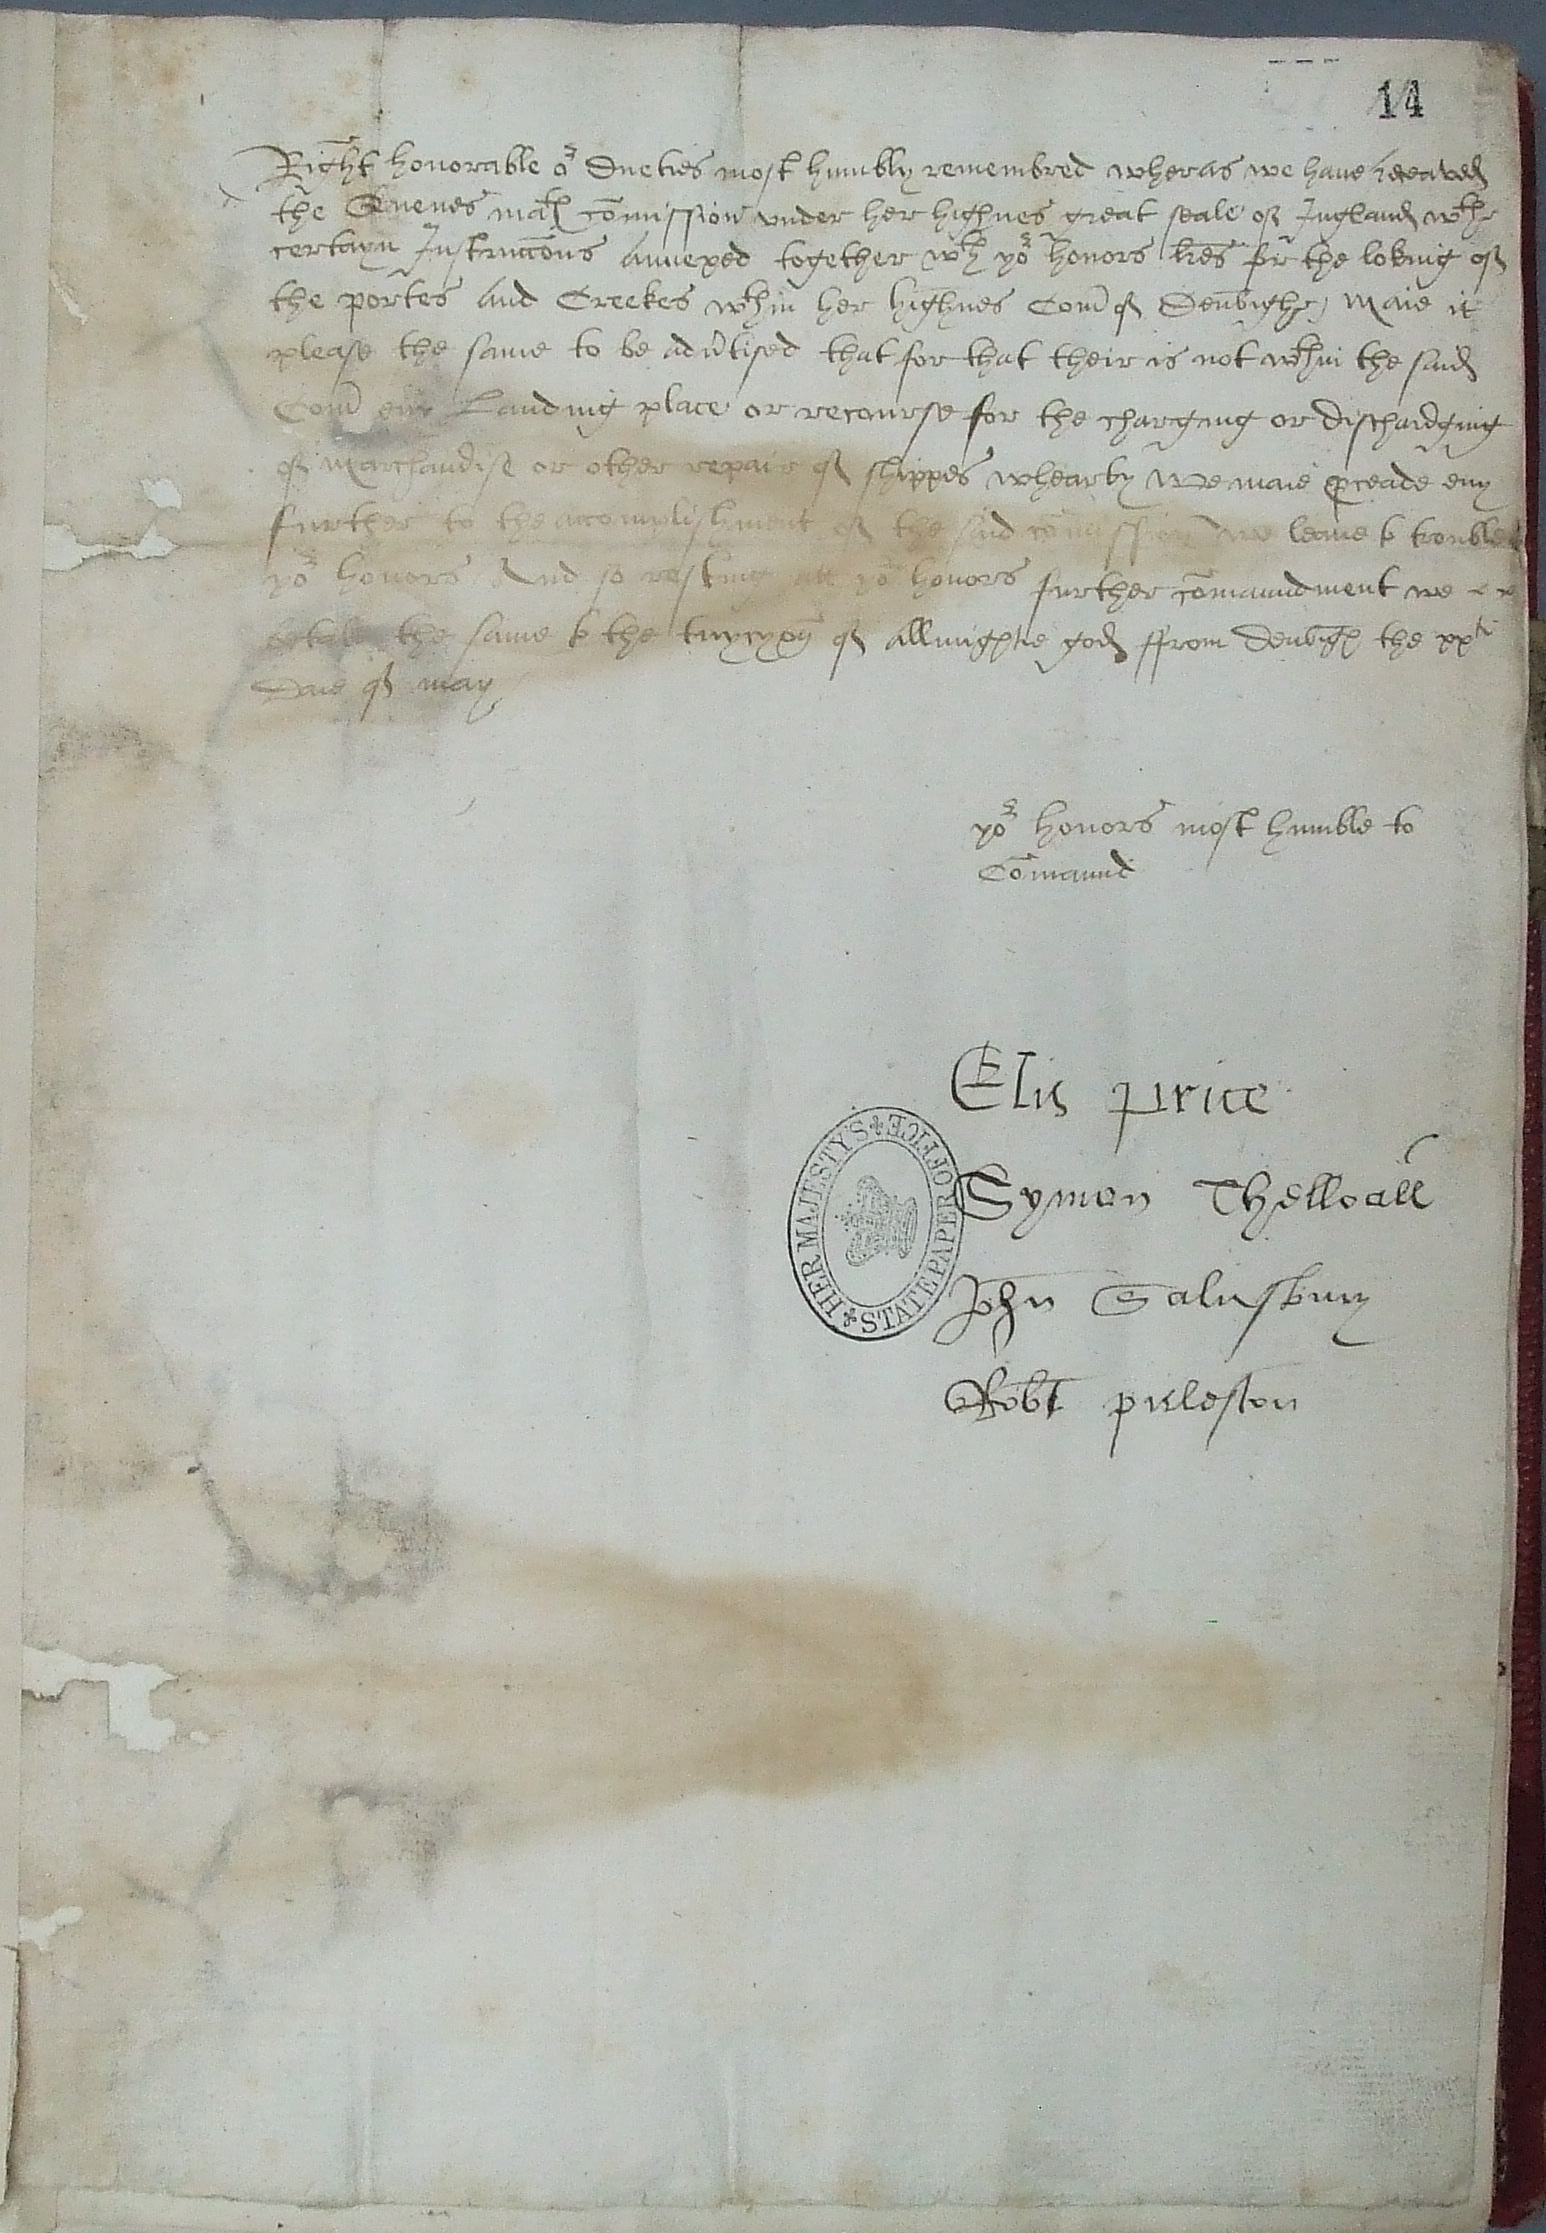 14
Right honorable oʳ Dueties most humbly remembred wheras we have receaved
the Quenes maᵗˢ com̄ission under her highnes great seale of Ingland wᵗʰ
certayn Instruccōns Annexed together wᵗʰ yoʳ honors lr̄es for the loking of
the portes And Creekes wᵗʰin her highnes Com̄ of Denbighe, Maie it
please the same to be adv̄tised that for that their is not wᵗʰin the said
Com̄ eny Landing place or recourse for the charging or dischardging
of Marchandise or other repair of shippes whearby We maie ꝓceade eny
further to the accomplishment of the said com̄ission we leave to trouble
yoʳ honors And so resting att yoʳ honors further com̄aundment we
betake the same to the tuycyon of Allmightie god ffrom Denbigh the xxᵗⁱ
Daie of may
yoʳ honors most humble to
Com̄aund
Elis price
Symon Thelloall
John Salusbury
Robt puleston
HER MAJESTY'S STATE PAPER OFFICE